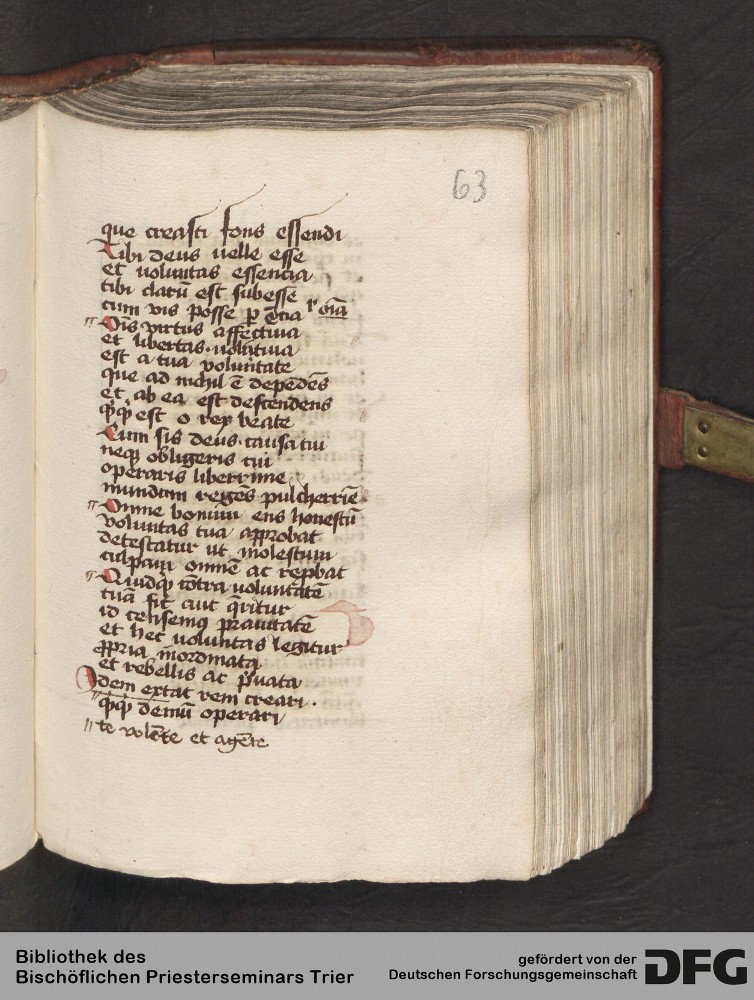 63
que creasti fons essendi
Tibi deus uelle esse
et voluntas essencia
tibi clarū est subesse
cum vis posse
Oīs virtus affectiua
et libertas uolitiua
est a tua voluntate
que ad nichil ē depēdēs
et ab ea est descendens
est o rex beate
Cum sis deus causa tui
neqʒ obligeris tui
operaris liberrime
mundum regēs pulcherrīe
Omne bonum ens honestū
voluntas tua approbat
detestatur ut molestum
culpam omnē ac repbat
Quidqͥd cōtra voluntatē
tuā fit aut q̄ritur
id censemus prauitatē
et hec voluntas legitur
ꝓpria inordinata
et rebellis ac pͥuata
Idem extat rem creari
demū operari
te volēte et agēte
Bibliothek des
Bischöflichen Priesterseminars Trier
gefördert von der
Deutschen Forschungsgemeinschaft
DFG